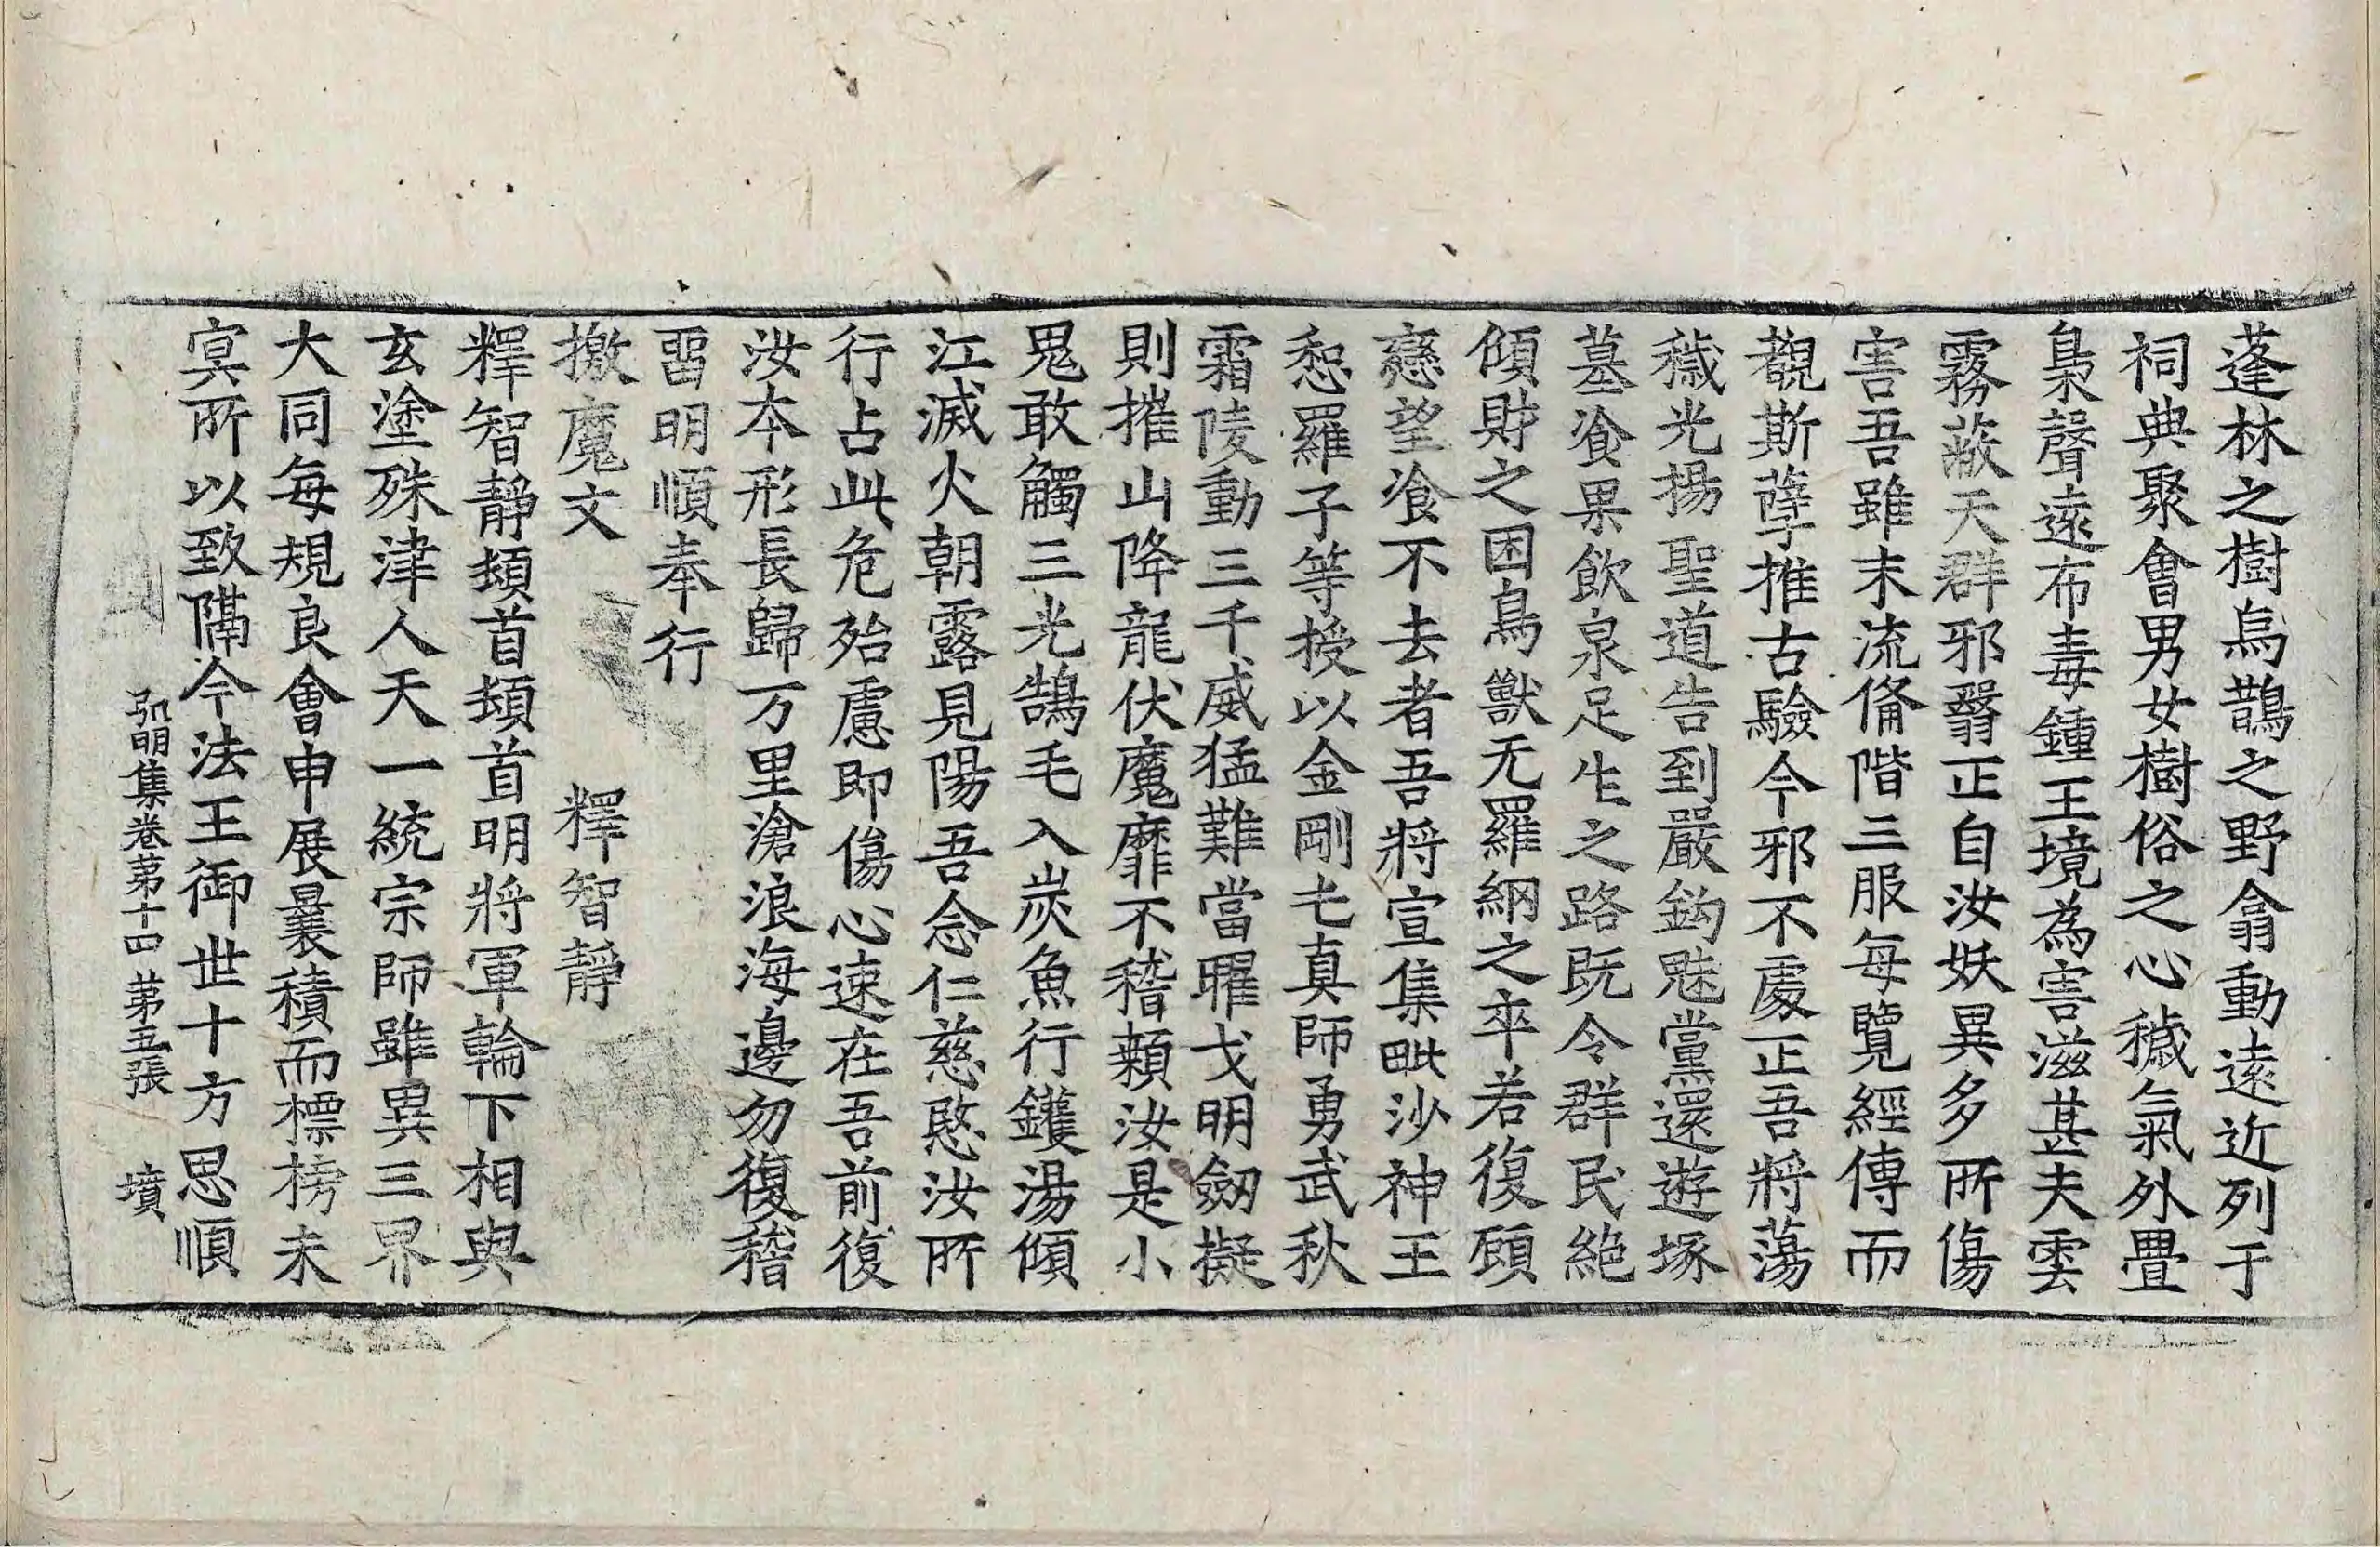 蓬林之樹烏鵲之野翕動遠近列于
祠典聚會男女樹俗之心穢氣外疊
梟聲遠布毒鍾王境為害滋甚夫雲
霧蔽天群邪翳正自汝妖異多所傷
害吾雖末流俻階三服每覽經傳而
覩斯孽推古驗今邪不處正吾將蕩
穢光揚聖道告到嚴鈎魅黨還遊塚
墓飡果飲泉足生之路既令群民絶
傾財之困鳥獸无羅網之卒若復顧
戀望飡不去者吾將宣集毗沙神王
惒羅子等授以金剛乇真師勇武秋
霜陵動三千威猛難當曜戈明劔擬
則摧山降龍伏魔靡不稽顙汝是小
鬼敢觸三光鵠毛入炭魚行鑊湯傾
江滅火朝露見陽吾念仁慈愍汝所
行占此危殆慮即傷心速在吾前復
汝本形長歸万里滄浪海邊勿復稽
畱明順奉行
檄魔文 釋智靜
釋智靜頓首頓首明將軍輪下相與
玄塗殊津人天一統宗師雖異三界
大同每規良會申展曩積而標榜未
冥所以致隔今法王御世十方思順
弘明集卷第十四 第五張 墳